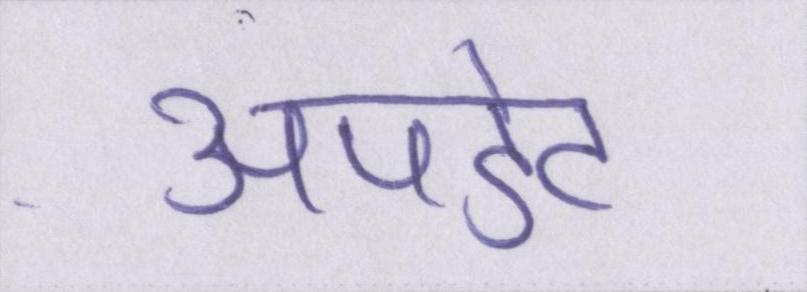 अपडेट